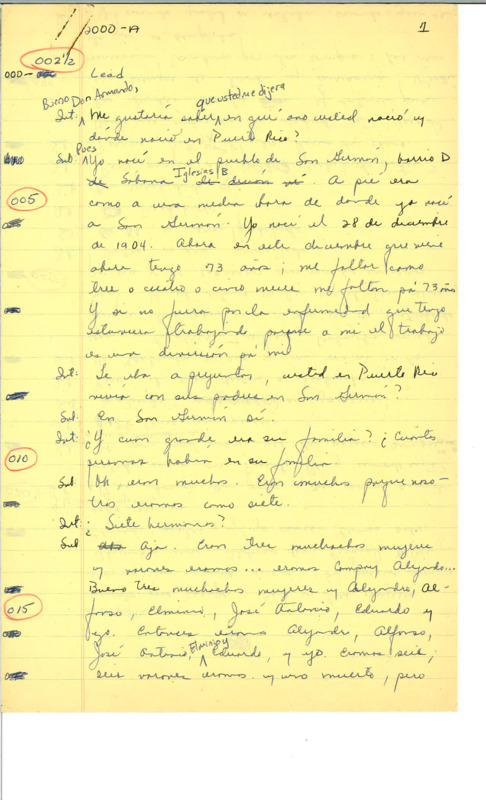 2000-A 1
002½
000- Lead
Bueno Don Armando, que usted me dijera
Int: Me gustaría saber en qué ano usted nació y
dónde nació en Puerto Rico?
Pues
Sub Yo nací en el pueblo de San Germán, barrio D
Sabana Iglesias B. A pié era
005 como a una media hora de donde yo nací
a San Germán. Yo nací el 28 de diciembre
de 1904. Ahora en este diciembre que viene
ahora tengo 73 años; me faltan como
tree o cuatro o cinco mese me faltan pá 73 años
Y si no fuera por la enfermedad que tengo
estuviera trabajando porque a mi el trabajo
es una diversión pá mi
Int: Le iba a preguntar, usted en Puerto Rico
vivía con sus padres en San Germán?
Sub: En San Germán sí.
Int: ¿Y cuan grande era su familia? ¿Cuántas
010 personas habían en su familia
Sub Oh, eran muchos. Eran muchos porque noso-
tros eramos como siete.
Int: ¿Siete hermanos?
Sub Aja. Eran tree muchachas mujeres
y varones eramos... eramos Compay Alejandro...
Bueno tres muchachas mujeres y Alejandro, Al-
015 fonso, Elminio, José Antonio, Eduardo y
yo. Entonces eramos Alejandro, Alfonso,
José Antonio, Elminio y Eduardo, y yo. Eramos seis,
seis varones eramos. y uno muerto, pero